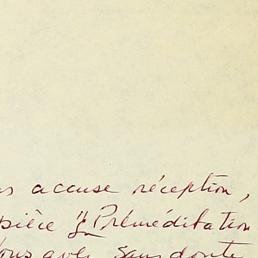 accuse réception,
pièce "Préméditation
sans doute